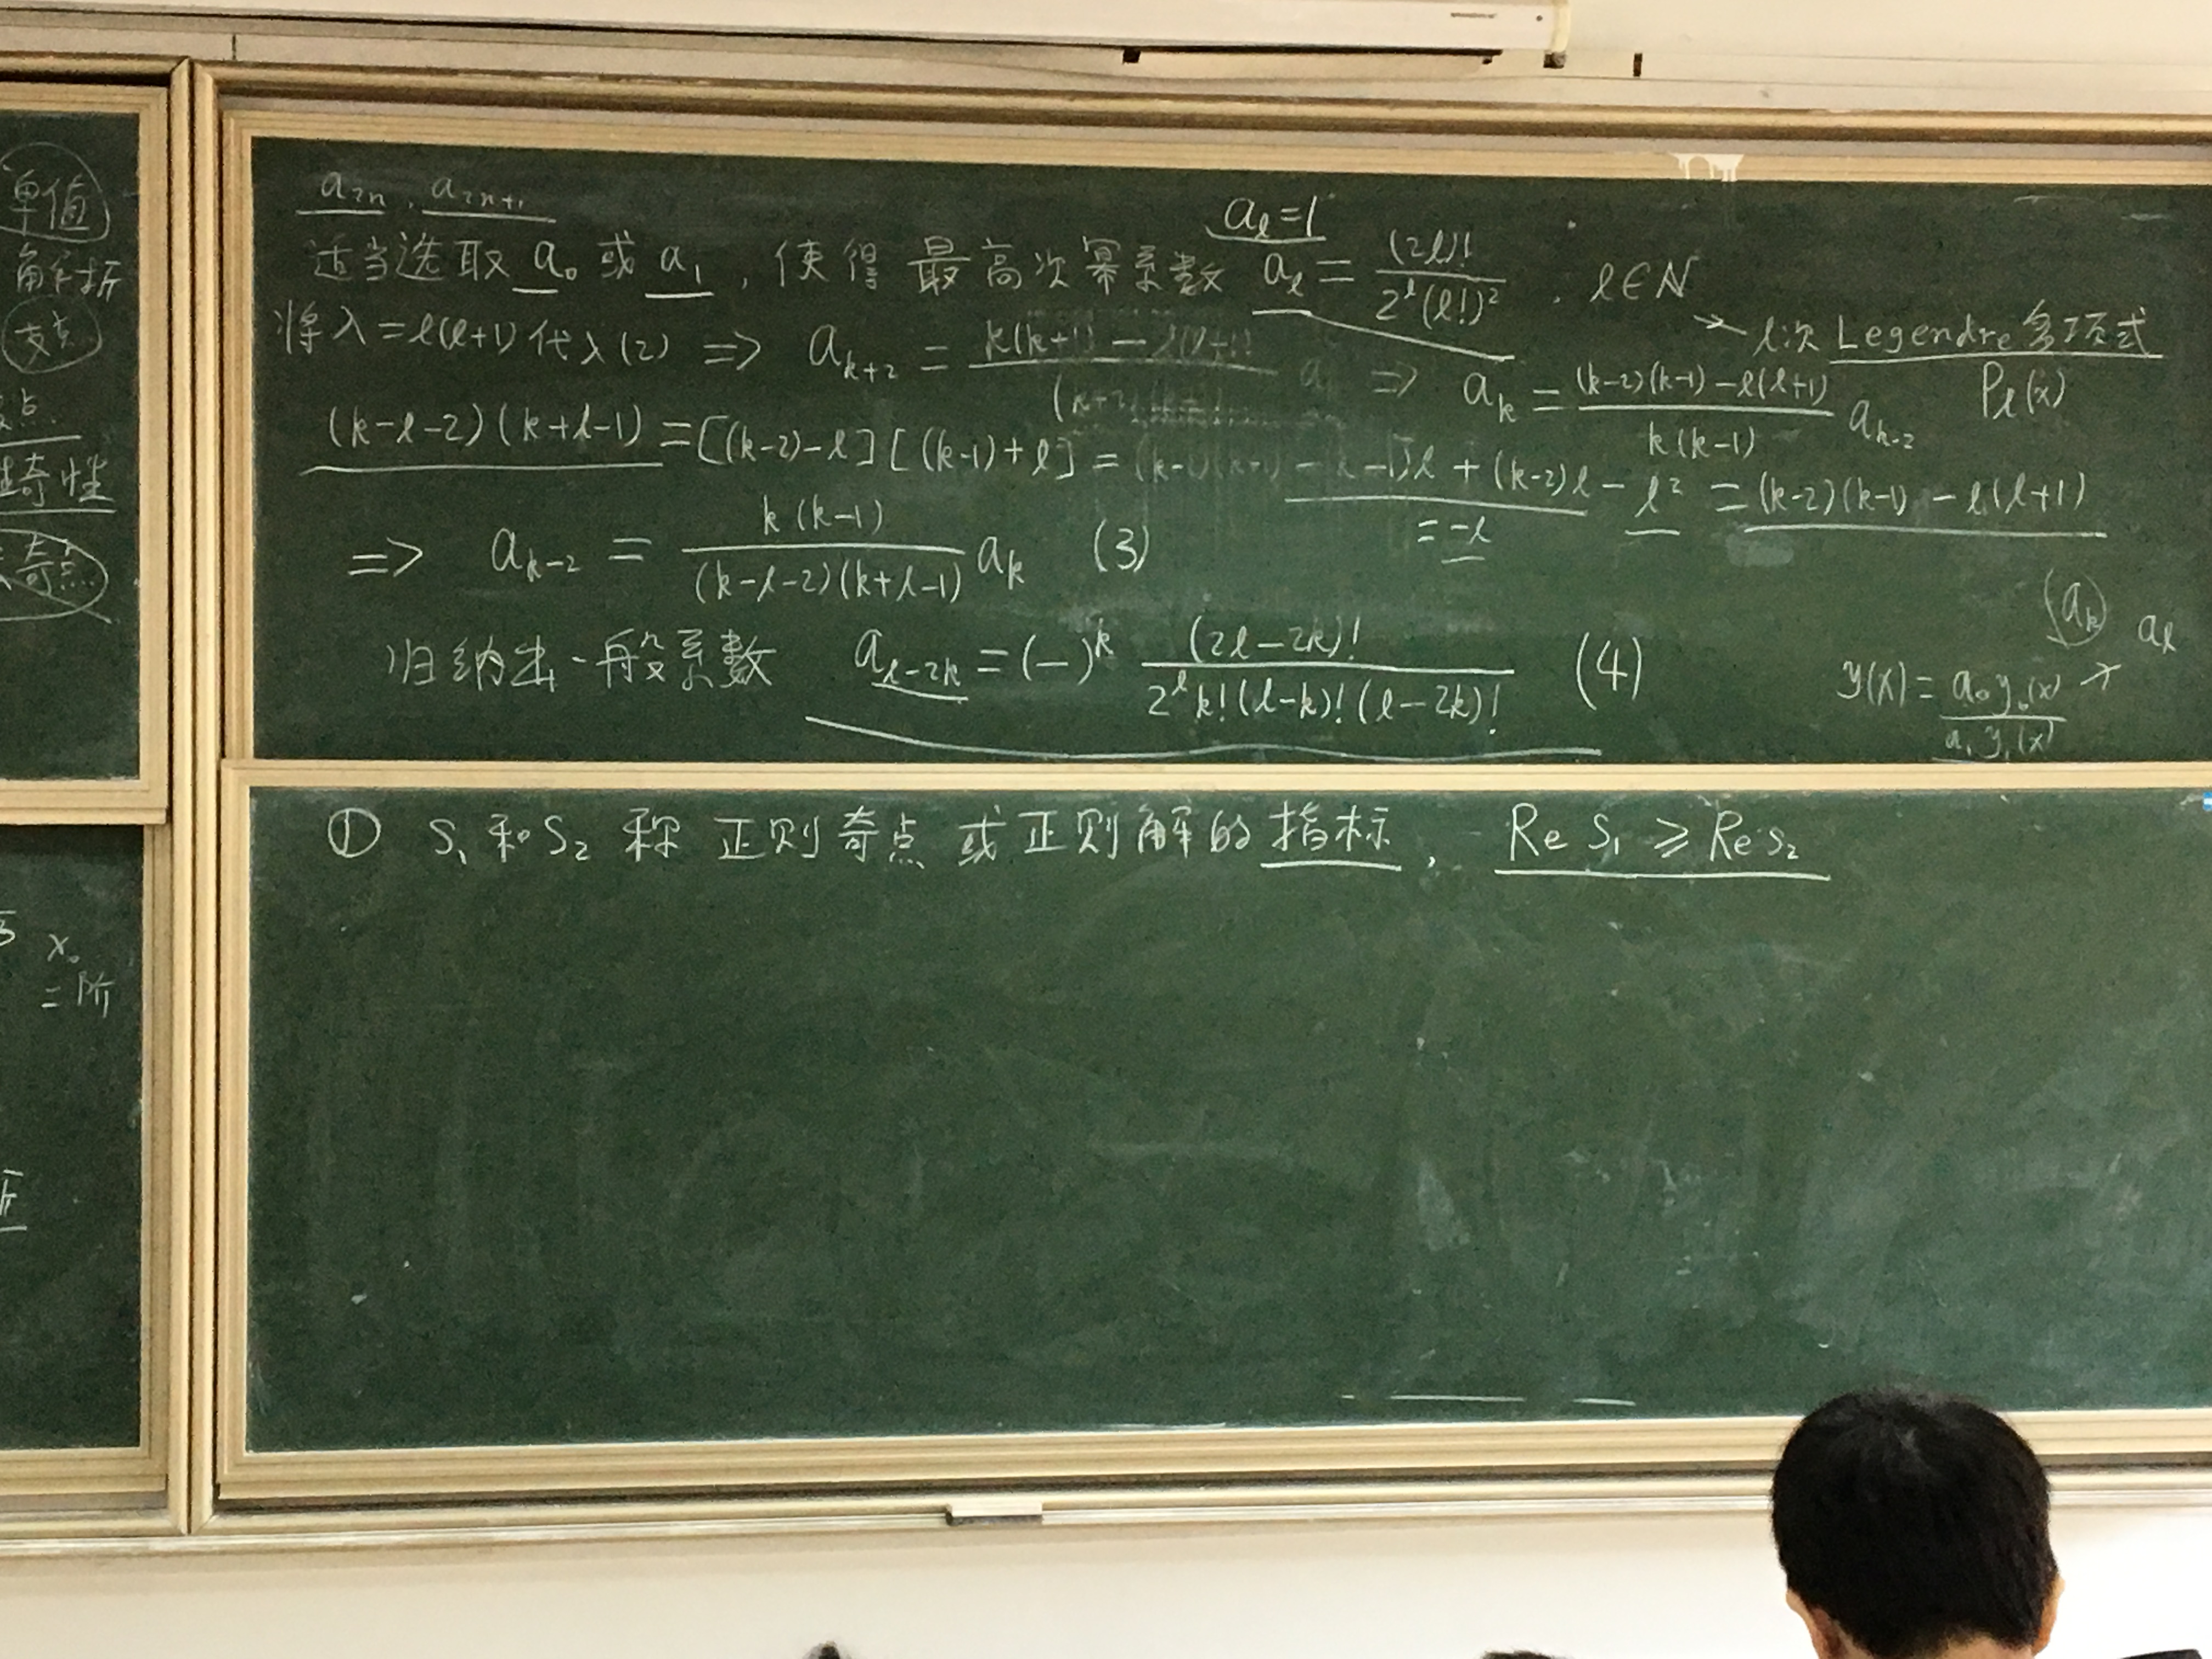 单值
解析
支点
奇性
奇点
x₀
二阶
a₂ₙ, a₂ₙ₊₁
a_l=1
适当选取 a₀ 或 a₁, 使得 最高次幂系数 a_l = (2l)!/(2^l(l!)²), l∈N
→ l次 Legendre多项式
P_l(x)
将λ=l(l+1)代入(2) => a_{k+2} = (k(k+1)-l(l+1))/((k+2)(k+1)) a => a_k = ((k-2)(k-1)-l(l+1))/(k(k-1)) a_{k-2}
(k-l-2)(k+l-1) = [(k-2)-l][(k-1)+l] = (k-2)(k-1) - (k-1)l + (k-2)l - l² = (k-2)(k-1) - l(l+1)
= -l
=> a_{k-2} = k(k-1)/((k-l-2)(k+l-1)) a_k (3)
a_k a_l
归纳出一般系数 a_{l-2k} = (-)^k (2l-2k)!/(2^l k!(l-k)!(l-2k)!) (4)
y(x) = a₀y₀(x)
a₁y₁(x)
① S₁ 和 S₂ 称 正则奇点 或 正则解的 指标, Re S₁ ⩾ Re S₂